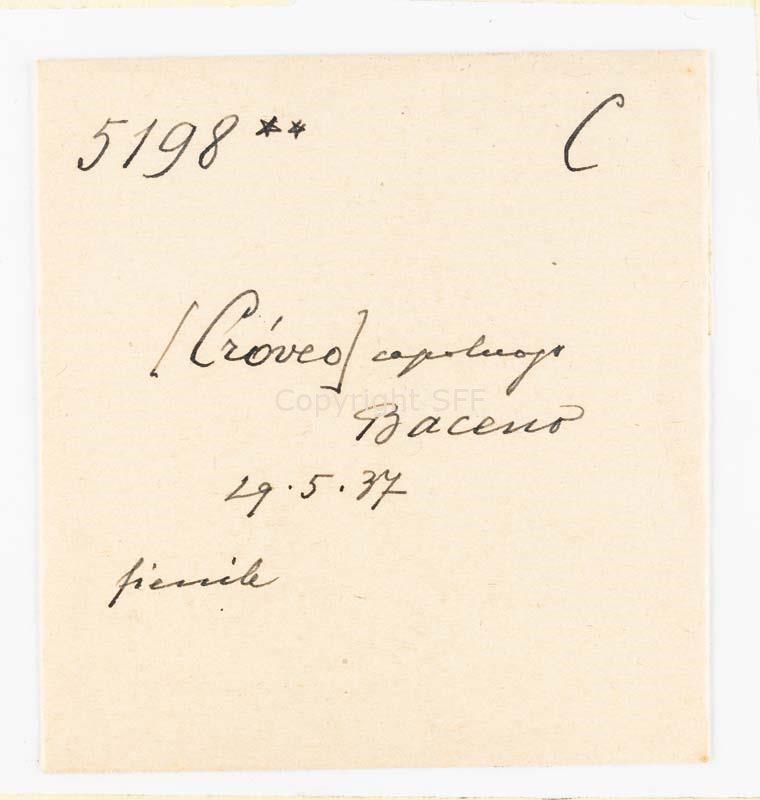 5198 ** C
[Cróveo] capoluogo
Copyright SFF
Baceno
29.5.37
fienile